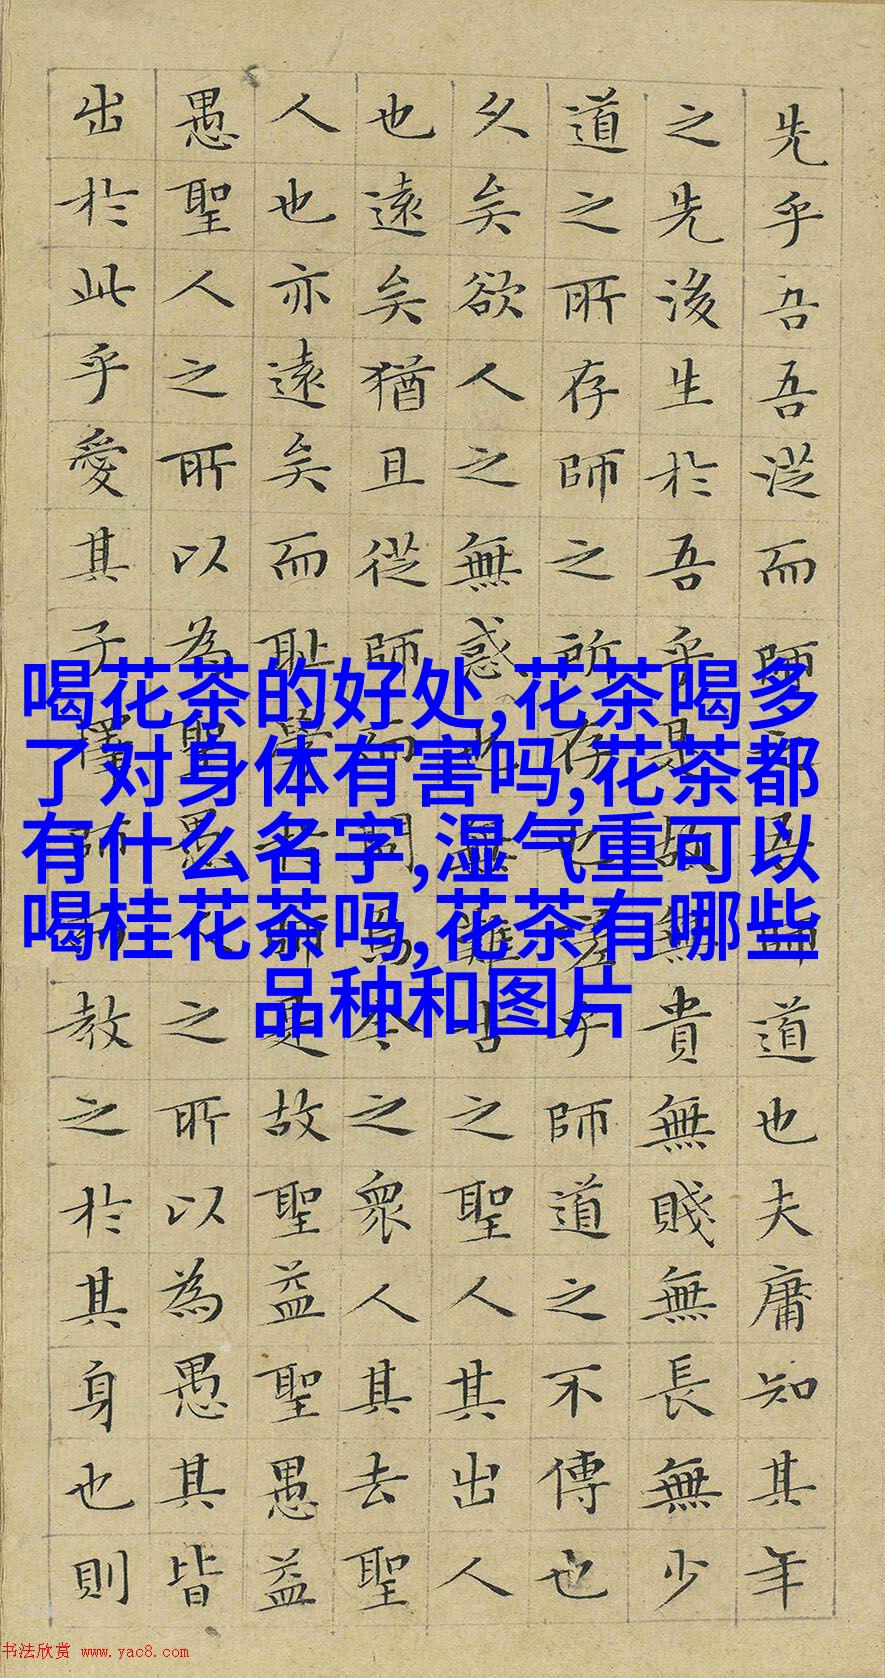 先乎吾吾從而師之吾師道也夫庸知其年
之先後生於吾乎是故無貴無賤無長無少
道之所存師之所存也嗟乎師道之不傳也
久矣欲人之無惑也難矣古之聖人其出人
也遠矣猶且從師而問焉今之衆人其去聖
人也亦遠矣而恥學於師是故聖益聖愚益
愚聖人之所以為聖愚人之所以為愚其皆
出於此乎愛其子擇師而教之於其身也則
喝花茶的好处,花茶喝多
了对身体有害吗,花茶都
有什么名字,湿气重可以
喝桂花茶吗,花茶有哪些
品种和图片
书法欣赏 www.yac8.com